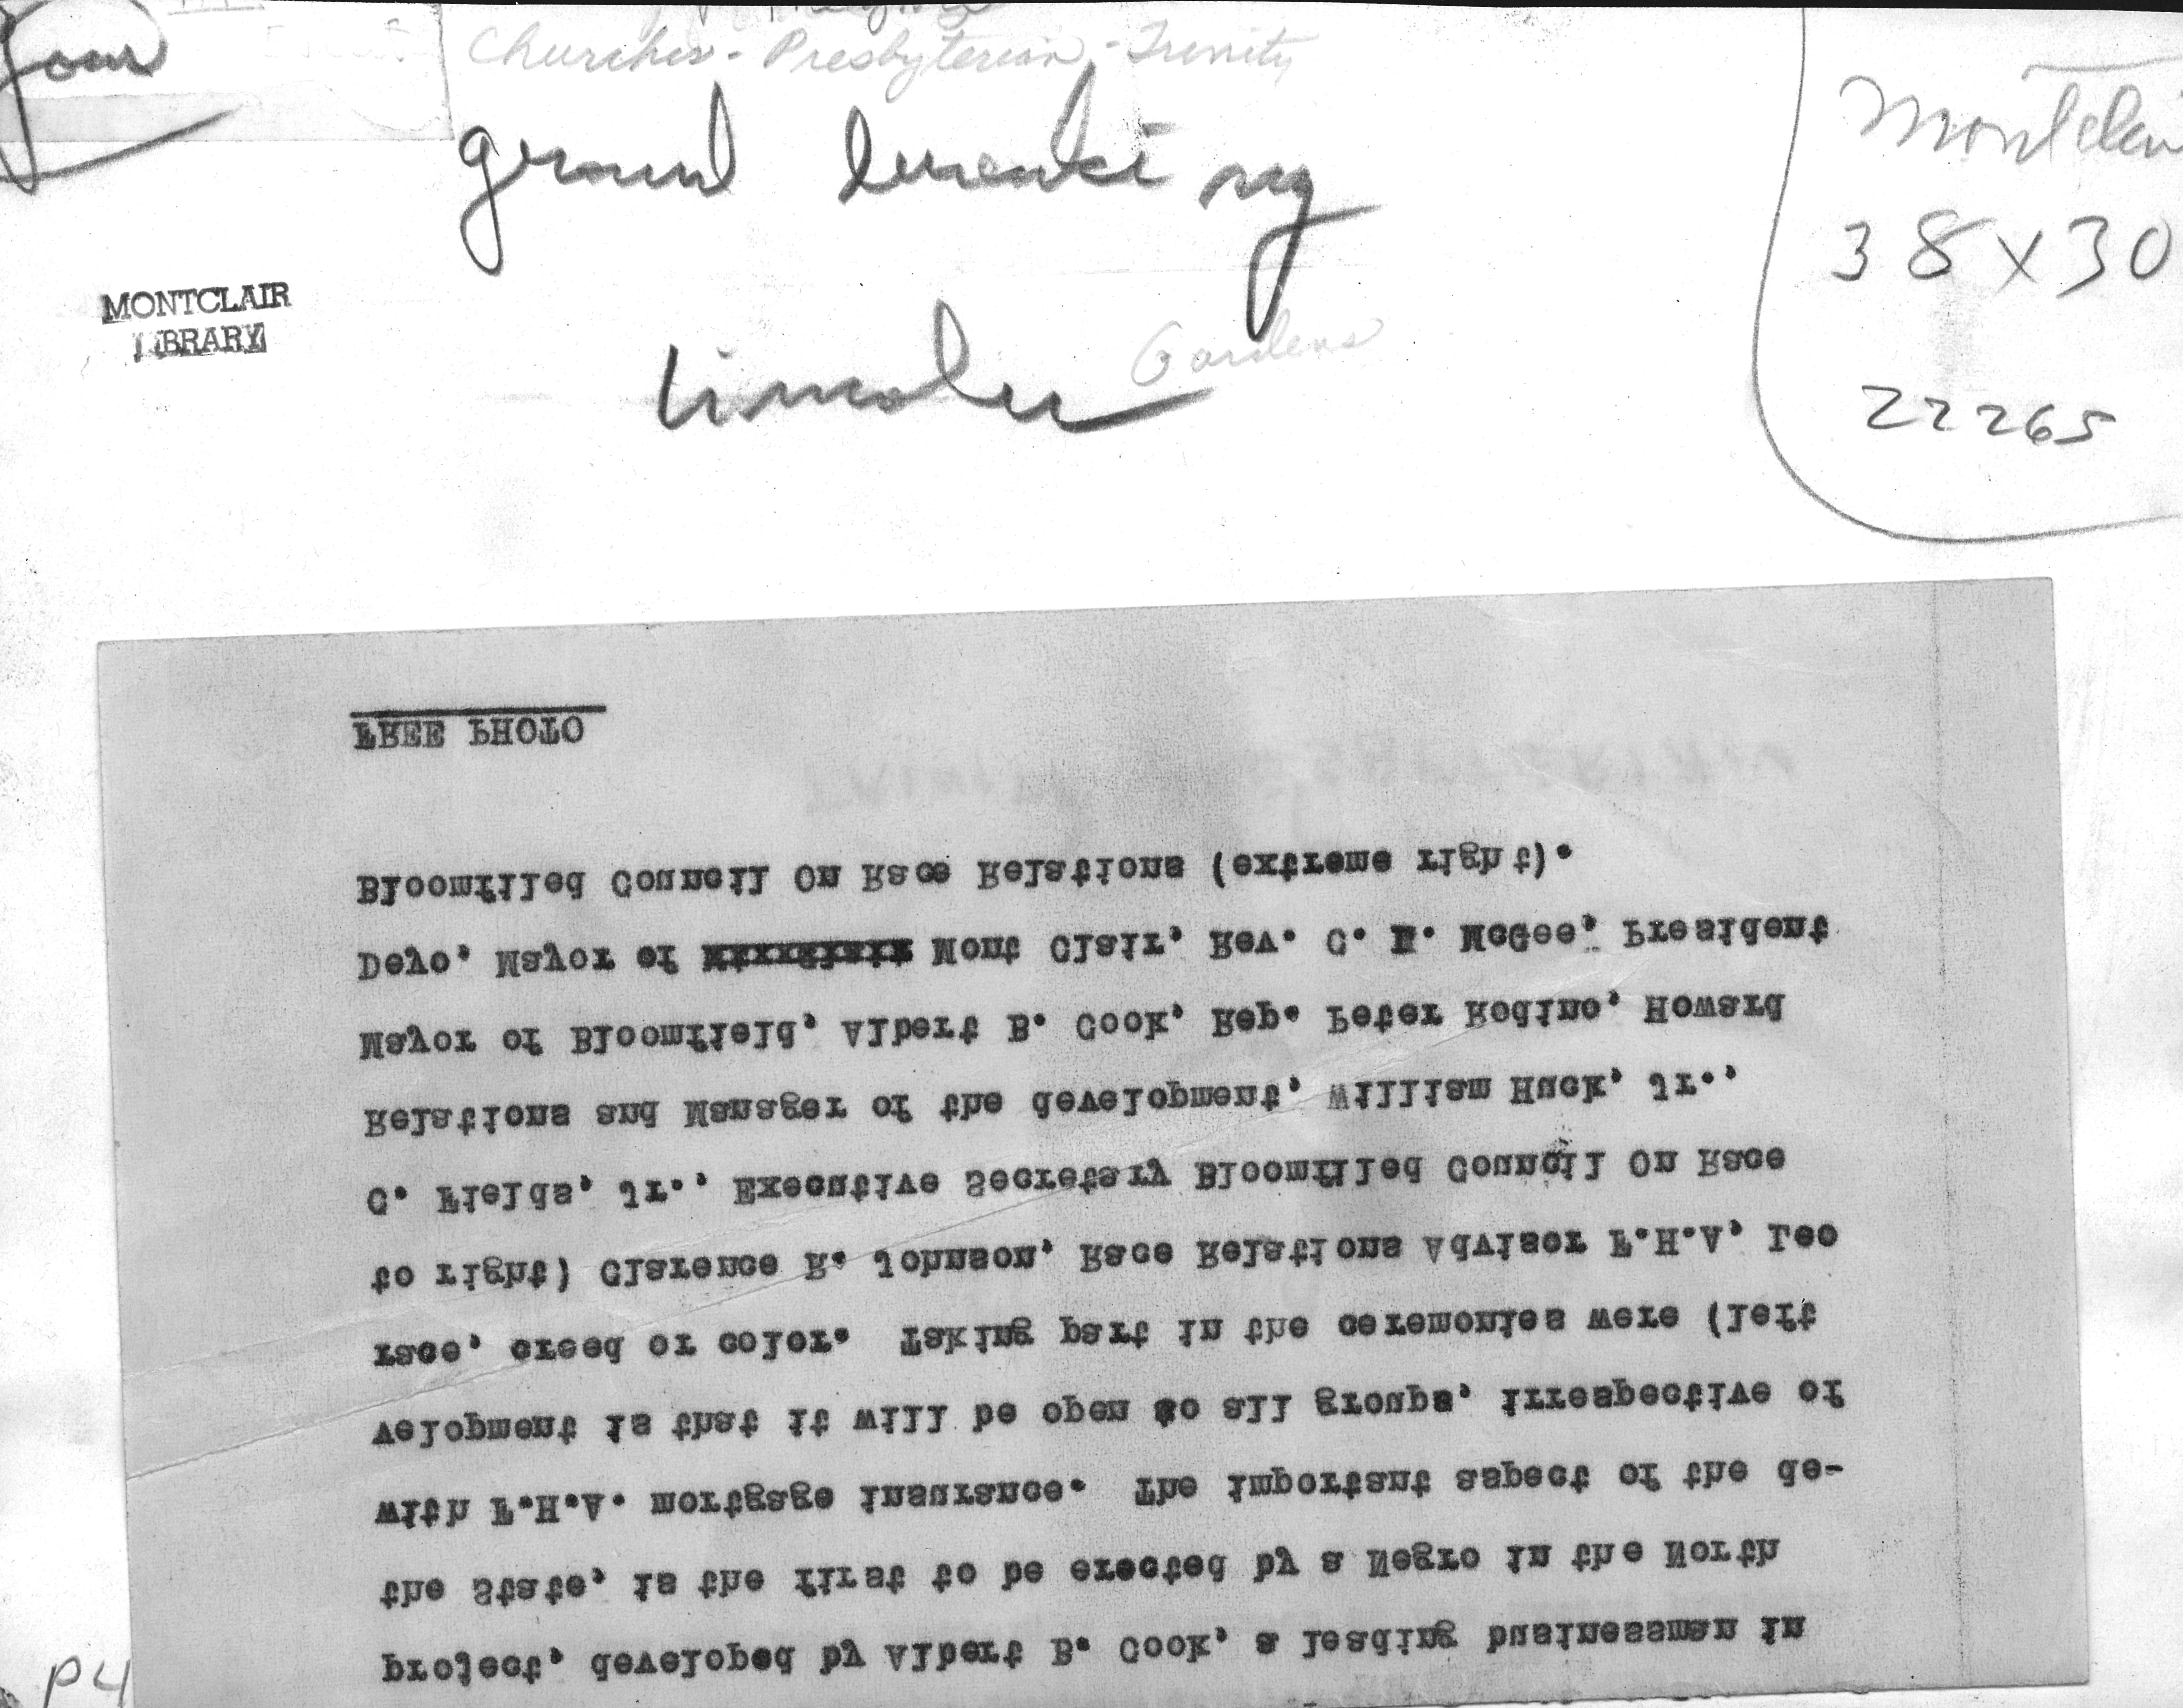 Churches - Presbyterian - Trinity
ground breaking
Lincoln Gardens
MONTCLAIR
LIBRARY
Montclair
38 x 30
22265
project, developed by Albert B. Cook, a leading businessman in
the State, is the first to be erected by a Negro in the North
with F.H.A. mortgage insurance. The important aspect of the de-
velopment is that it will be open to all groups, irrespective of
race, creed or color. Taking part in the ceremonies were (left
to right) Clarence R. Johnson, Race Relations Adviser F.H.A, Leo
C. Fields, Jr., Executive Secretary Bloomfiled Council On Race
Relations and Manager of the development, William Huck, Jr.,
Mayor of Bloomfield, Albert B. Cook, Rep. Peter Rodino, Howard
Deyo, Mayor of Mont Clair, Rev. C. McGee, President
Bloomfiled Council On Race Relations (extreme right).
FREE PHOTO
P4